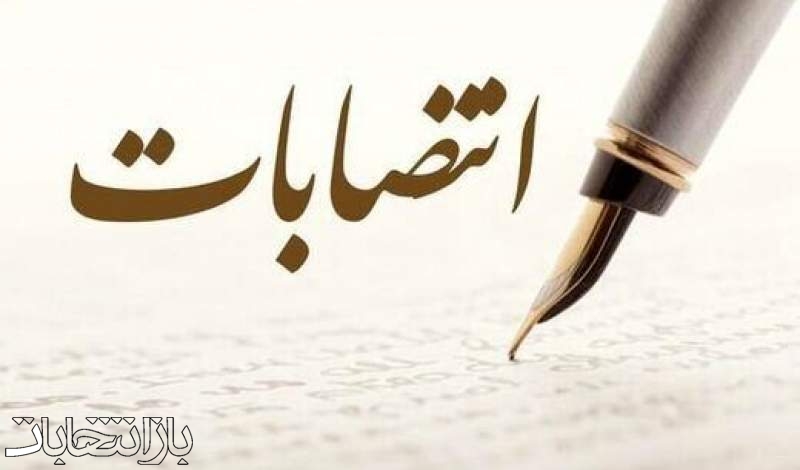 انتصابات
بازانتخابات